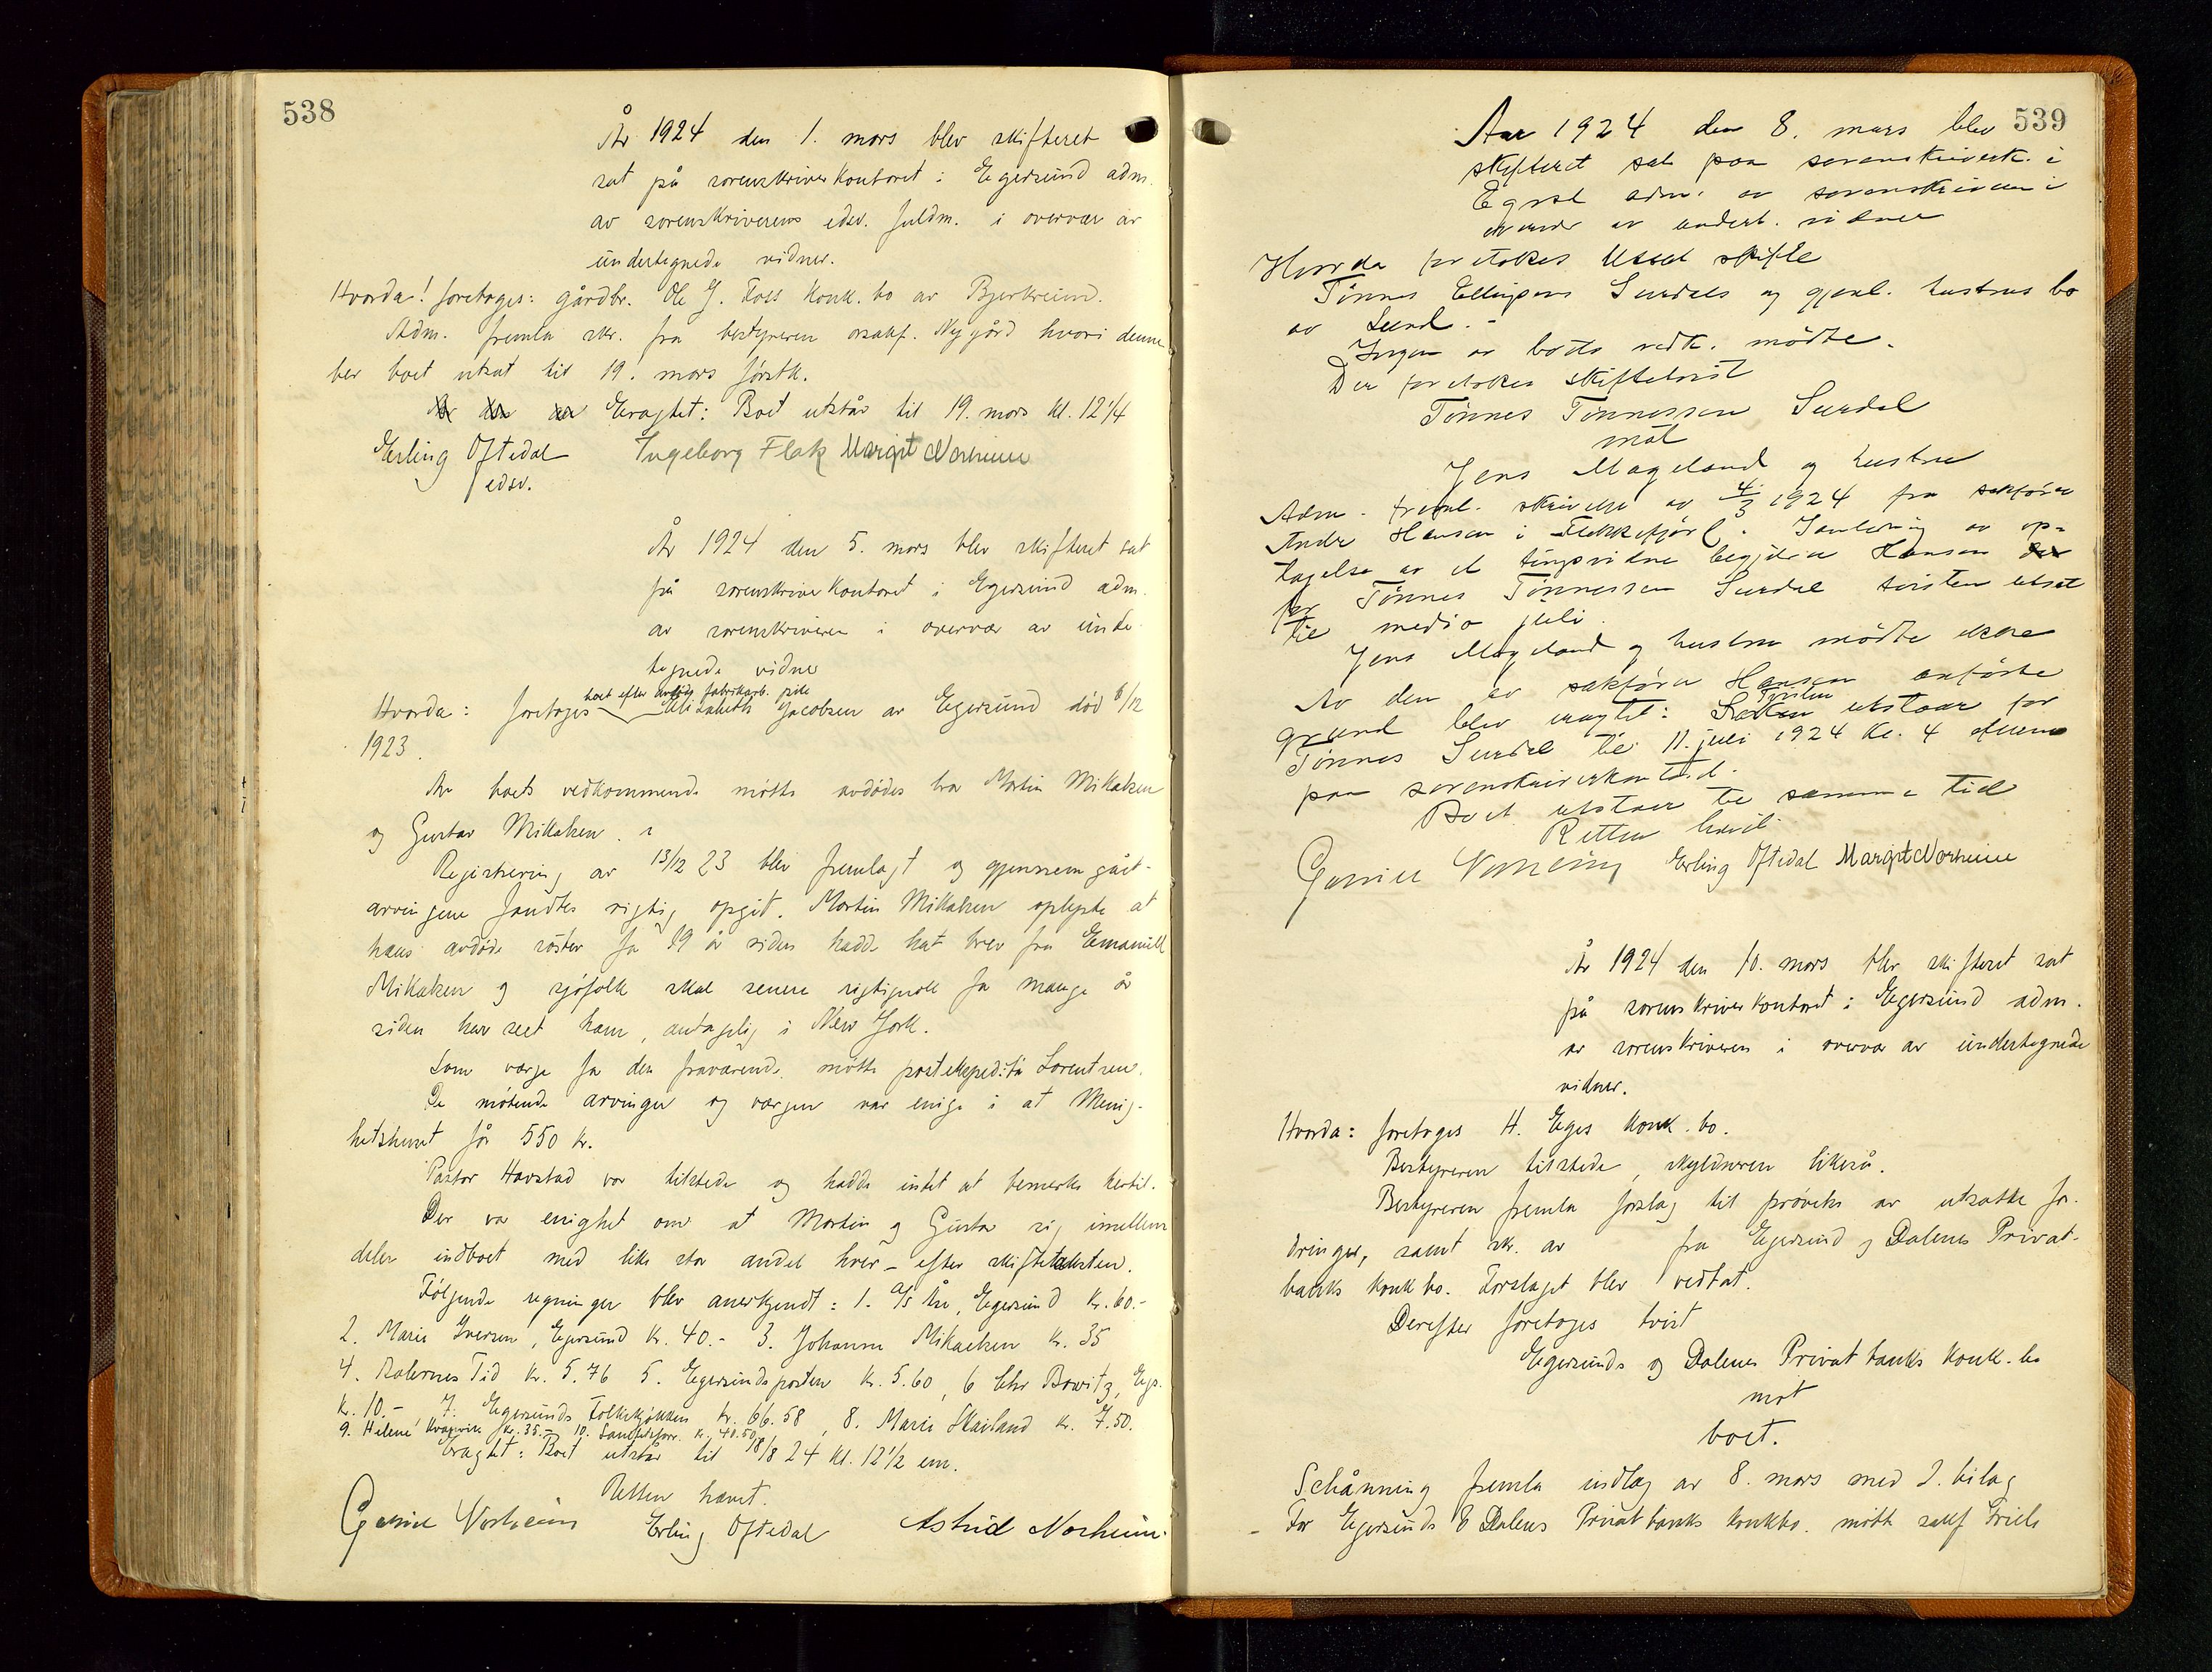 538
År 1924 den 1. mars blev skifteret
sat på sorenskriverkontoret i Egersund adm.
av sorenskriverens edsv. fuldm. i overvær av
undertegnede vidner.
Hvorda! foretoges: gårdbr. Ole J. Foss konk. bo av Bjerkreim.
Adm. fremla skr. fra bestyreren orsakf. Nygård hvori denne
ber boet utsat til 19. mars førstk.
Eragtet: Boet utstår til 19. mars kl. 12 1/4
Erling Oftedal Ingeborg Flak Margit Norheim
edsv.
År 1924 den 5. mars blev skifteret sat
på sorenskriverkontoret i Egersund adm.
av sorenskriveren i overvær av under
tegnede vidner
boet efter avdøde fabrikarb. pike
Hvorda: foretoges Elisabeth Jacobsen av Egersund død 6/12
1923.
Av boets vedkommende møtte avdødes bror Martin Mikalsen
og Gustav Mikalsen.
Registrering av 13/12 23 blev fremlagt og gjennemgåt.
arvingene fandtes rigtig opgit. Martin Mikalsen oplyste at
hans avdøde søster for 19 år siden hadde hat brev fra Emanuel
Mikalsen og sjøfolk skal senere rigtignok for mange år
siden har seet ham, antagelig i New York.
Som værge for den fraværende møtte postekspeditør Lorentzen.
De møtende arvinger og værgen var enige i at Menig-
hetshuset får 550 kr.
Pastor Havstad var tilstede og hadde intet at bemerke hertil.
Der var enighet om at Martin og Gustav sig imellem
deler indboet med like stor andel hver - efter skiftetaksten.
Følgende regninger blev anerkjendt: 1. A/S Egersund kr. 60.-
2. Marie Iversen, Egersund kr. 40.- 3. Johanne Mikaelsen kr. 35
4. Dalernes Tid kr. 5.76 5. Egersundsposten kr. 5.60, 6 Chr Bowitz, Egs.
kr. 10.- 7. Egersunds Folkekjøkken kr. 66.58, 8. Marie Skailand kr. 7.50.
9. Helene kr. 35.- 10. kr. 40.50
Eragtet: Boet utstår til 18/8 24 kl. 12 1/2 em.
Retten hævet.
Norheim Erling Oftedal Astrid Norheim.
539
Aar 1924 den 8. mars blev
skifteret sat paa sorenskriverk. i
Egrsd adm. av sorenskriveren i
overvær av undert. vidner
Hvorda foretokes Utsat skifte
Tønnes Ellingsens Surdals og gjenl. hustrus bo
av Lund.-
Ingen av boets vedk. mødte.
Der foretokes skiftetvist
Tønnes Tønnessen Surdal
mot
Jens Mageland og hustru
Adm. freml. skrivelse av 4/3 1924 fra sakfører
Andr Hansen i Flekkefjord. I anledning av op-
tagelse av et tingsvidne begjærer Hansen
for Tønnes Tønnessen Surdal tvisten utsat
til medio juli.
Jens Mageland og hustru mødte ikke
Av den av sakfører Hansen anførte
Tvisten
grund blev eragtet: Saken utstaar for
Tønnes Surdal til 11. juli 1924 kl. 4 eftermd
paa sorenskriverkontoret.
Boet utstaar til samme tid
Retten hævet
Erling Oftedal Margit Norheim
År 1924 den 10. mars blev skifteret sat
på sorenskriverkontoret i Egersund adm.
av sorenskriveren i overvær av undertegnede
vidner.
Hvorda: foretoges H. Eges konk. bo.
Bestyreren tilstede, skyldneren likeså.
Bestyreren fremla forslag til prøvelse av utsatte for-
dringer, samt skr. av fra Egersund og Dalenes Privat-
banks konkbo. Forslaget blev vedtat.
Derefter foretoges tvist
Egersunds og Dalenes Privatbanks konk. bo
mot
boet.
Schånning fremla indlæg av 8. mars med 2. bilag
- For Egersunds & Dalens Privatbanks konkbo. møtte sakf